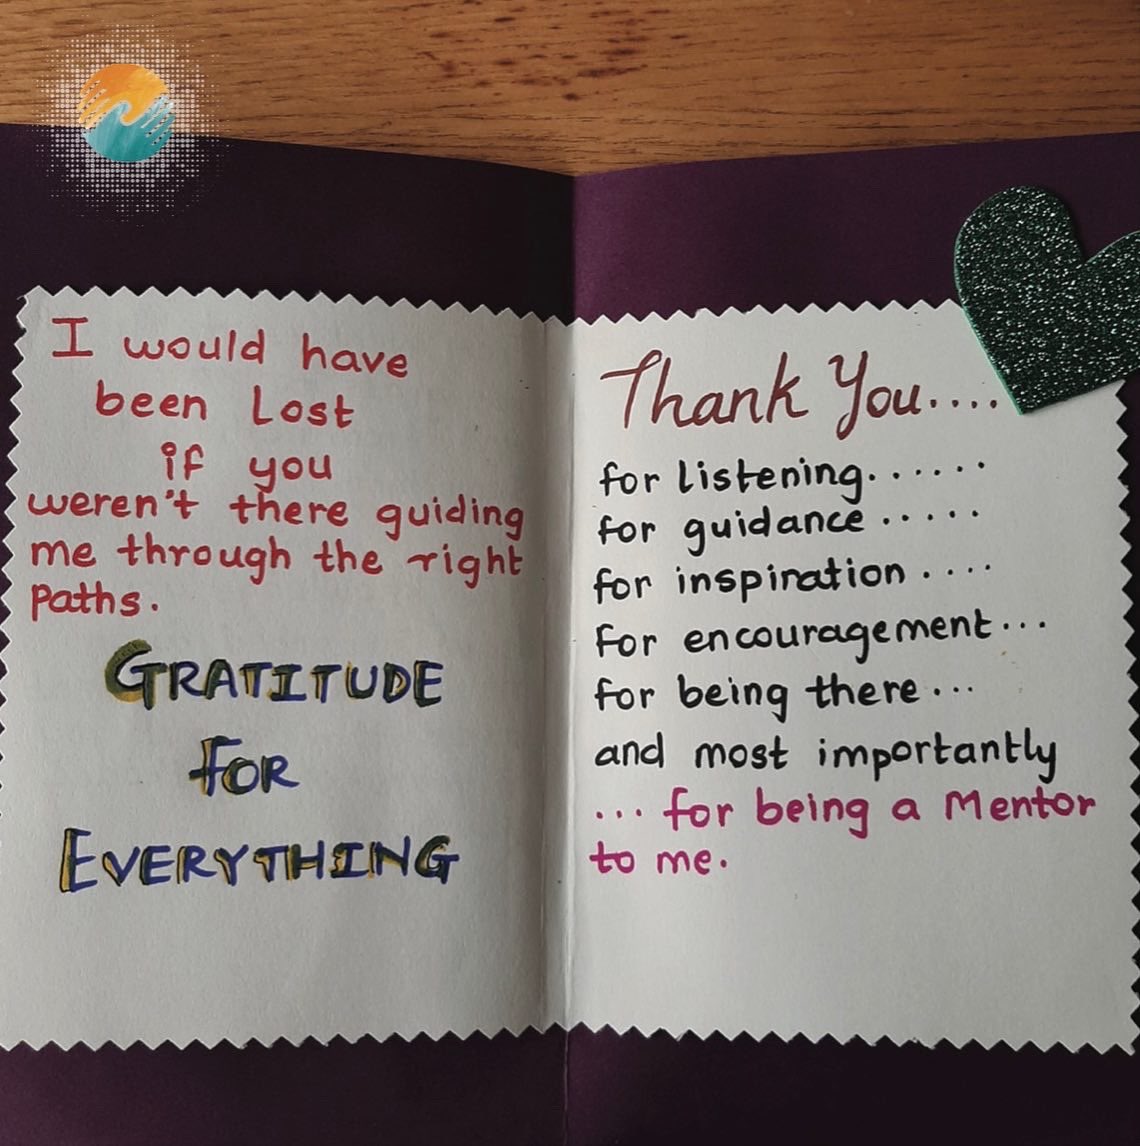 I would have
been Lost
if you
weren't there guiding
me through the right
paths.
GRATITUDE
FOR
EVERYTHING
Thank You....
for listening......
for guidance.....
for inspiration....
for encouragement...
for being there...
and most importantly
... for being a Mentor
to me.